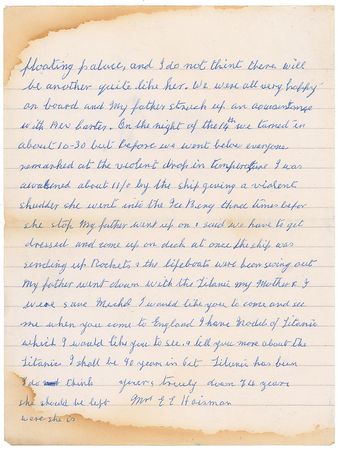 floating palace, and I do not think there will
be another quite like her. We were all very happy
on board and My father struck up an acquaintance
with Rev Carter. On the night of the 14th we turned in
about 10-30 but before we went below everyone
remarked at the violent drop in temperature I was
awakened about 11/0 by the ship giving a violent
shudder she went into the Ice Berg three times before
she stop My father went up on & said we have to get
dressed and come up on deck at once the ship was
sending up Rockets & the lifeboats were been swing out
My father went down with the Titanic my Mother & I
were save I would like you to come and see
me when you come to England I have Model of Titanic
which I would like you to see, & tell you more about the
Titanic I shall be 90 years in Oct Titanic has been
I do not think yours truely down 74 years
she should be left Mrs E E Haisman
were she is